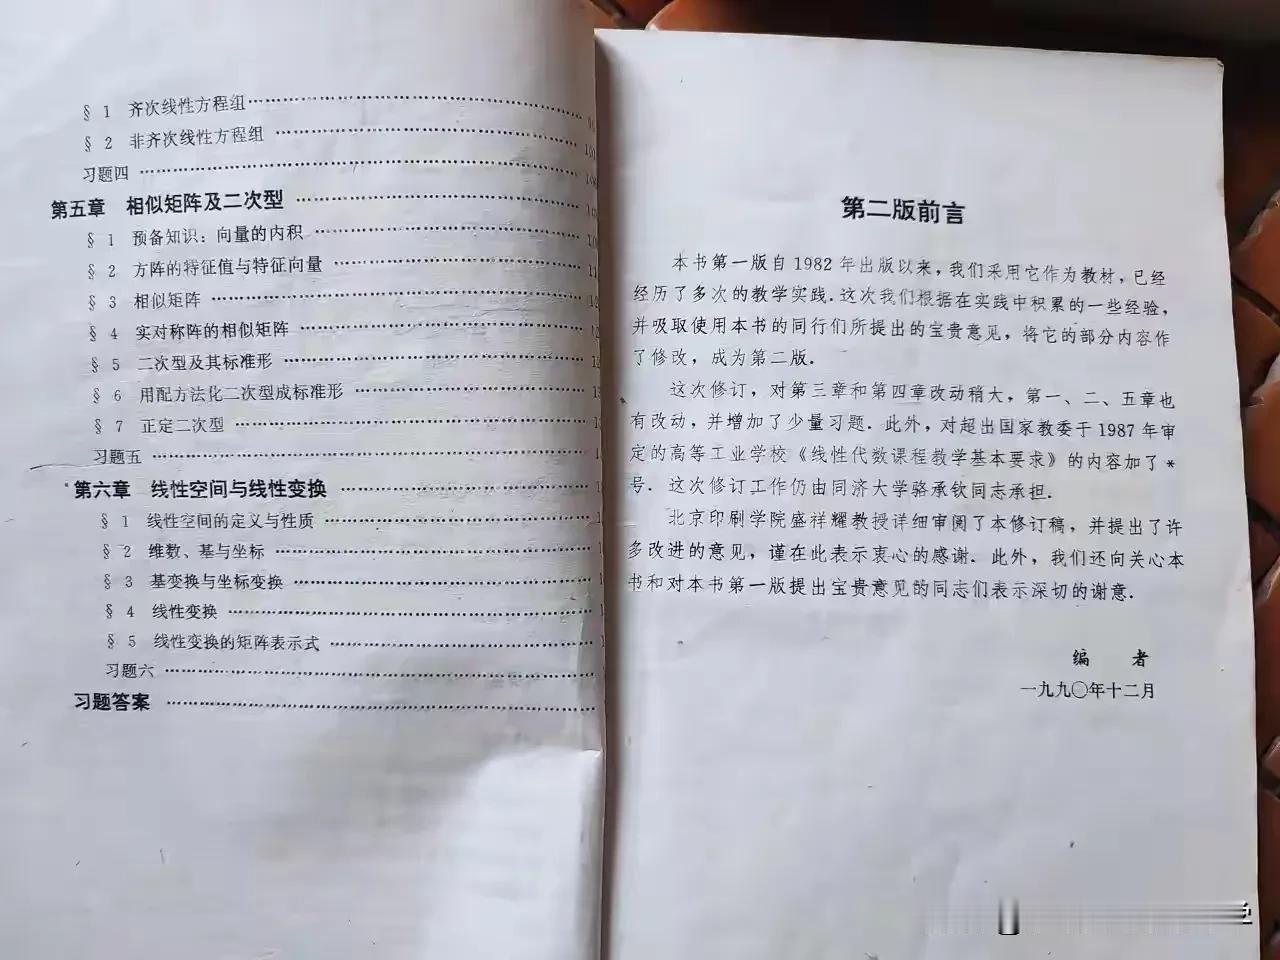 § 1 齐次线性方程组
§ 2 非齐次线性方程组
习题四
第五章 相似矩阵及二次型
§ 1 预备知识：向量的内积
§ 2 方阵的特征值与特征向量
§ 3 相似矩阵
§ 4 实对称阵的相似矩阵
§ 5 二次型及其标准形
§ 6 用配方法化二次型成标准形
§ 7 正定二次型
习题五
第六章 线性空间与线性变换
§ 1 线性空间的定义与性质
§ 2 维数、基与坐标
§ 3 基变换与坐标变换
§ 4 线性变换
§ 5 线性变换的矩阵表示式
习题六
习题答案
第二版前言
本书第一版自 1982 年出版以来，我们采用它作为教材，已经
经历了多次的教学实践．这次我们根据在实践中积累的一些经验，
并吸取使用本书的同行们所提出的宝贵意见，将它的部分内容作
了修改，成为第二版．
这次修订，对第三章和第四章改动稍大，第一、二、五章也
有改动，并增加了少量习题．此外，对超出国家教委于 1987 年审
定的高等工业学校《线性代数课程教学基本要求》的内容加了 *
号．这次修订工作仍由同济大学骆承钦同志承担．
北京印刷学院盛祥耀教授详细审阅了本修订稿，并提出了许
多改进的意见，谨在此表示衷心的感谢．此外，我们还向关心本
书和对本书第一版提出宝贵意见的同志们表示深切的谢意．
编 者
一九九〇年十二月